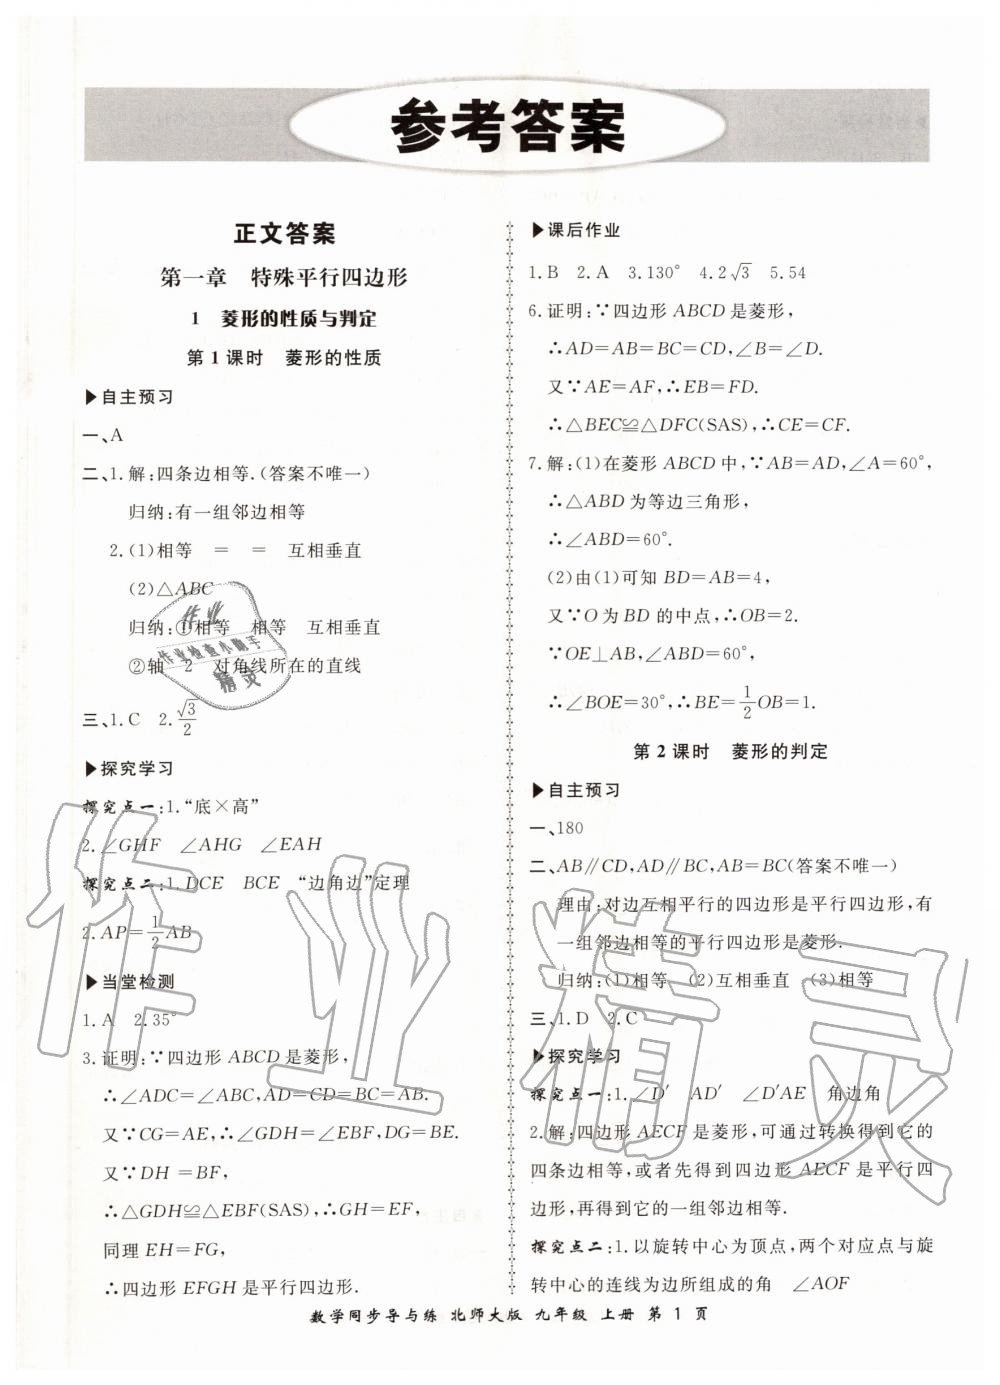 参考答案
正文答案
第一章　特殊平行四边形
1　菱形的性质与判定
第1课时　菱形的性质
▶自主预习
一、A
二、1.解:四条边相等.(答案不唯一)
归纳:有一组邻边相等
2.(1)相等　=　=　互相垂直
(2)△ABC
归纳:①相等　相等　互相垂直
②轴　2　对角线所在的直线
三、1.C　2.√3/2
▶探究学习
探究点一:1.“底×高”
2.∠GHF　∠AHG　∠EAH
探究点二:1.DCE　BCE　“边角边”定理
2.AP=1/2AB
▶当堂检测
1.A　2.35°
3.证明:∵四边形ABCD是菱形,
∴∠ADC=∠ABC,AD=CD=BC=AB.
又∵CG=AE,∴∠GDH=∠EBF,DG=BE.
又∵DH=BF,
∴△GDH≌△EBF(SAS),∴GH=EF,
同理EH=FG,
∴四边形EFGH是平行四边形.
▶课后作业
1.B　2.A　3.130°　4.2√3　5.54
6.证明:∵四边形ABCD是菱形,
∴AD=AB=BC=CD,∠B=∠D.
又∵AE=AF,∴EB=FD.
∴△BEC≌△DFC(SAS),∴CE=CF.
7.解:(1)在菱形ABCD中,∵AB=AD,∠A=60°,
∴△ABD为等边三角形,
∴∠ABD=60°.
(2)由(1)可知BD=AB=4,
又∵O为BD的中点,∴OB=2.
∵OE⊥AB,∠ABD=60°,
∴∠BOE=30°,∴BE=1/2OB=1.
第2课时　菱形的判定
▶自主预习
一、180
二、AB∥CD,AD∥BC,AB=BC(答案不唯一)
理由:对边互相平行的四边形是平行四边形,有
一组邻边相等的平行四边形是菱形.
归纳:(1)相等　(2)互相垂直　(3)相等
三、1.D　2.C
▶探究学习
探究点一:1.∠D′　AD′　∠D′AE　角边角
2.解:四边形AECF是菱形,可通过转换得到它的
四条边相等,或者先得到四边形AECF是平行四
边形,再得到它的一组邻边相等.
探究点二:1.以旋转中心为顶点,两个对应点与旋
转中心的连线为边所组成的角　∠AOF
数学同步导与练 北师大版 九年级 上册 第1页
作业
作业检查小助手
精灵
作业精灵